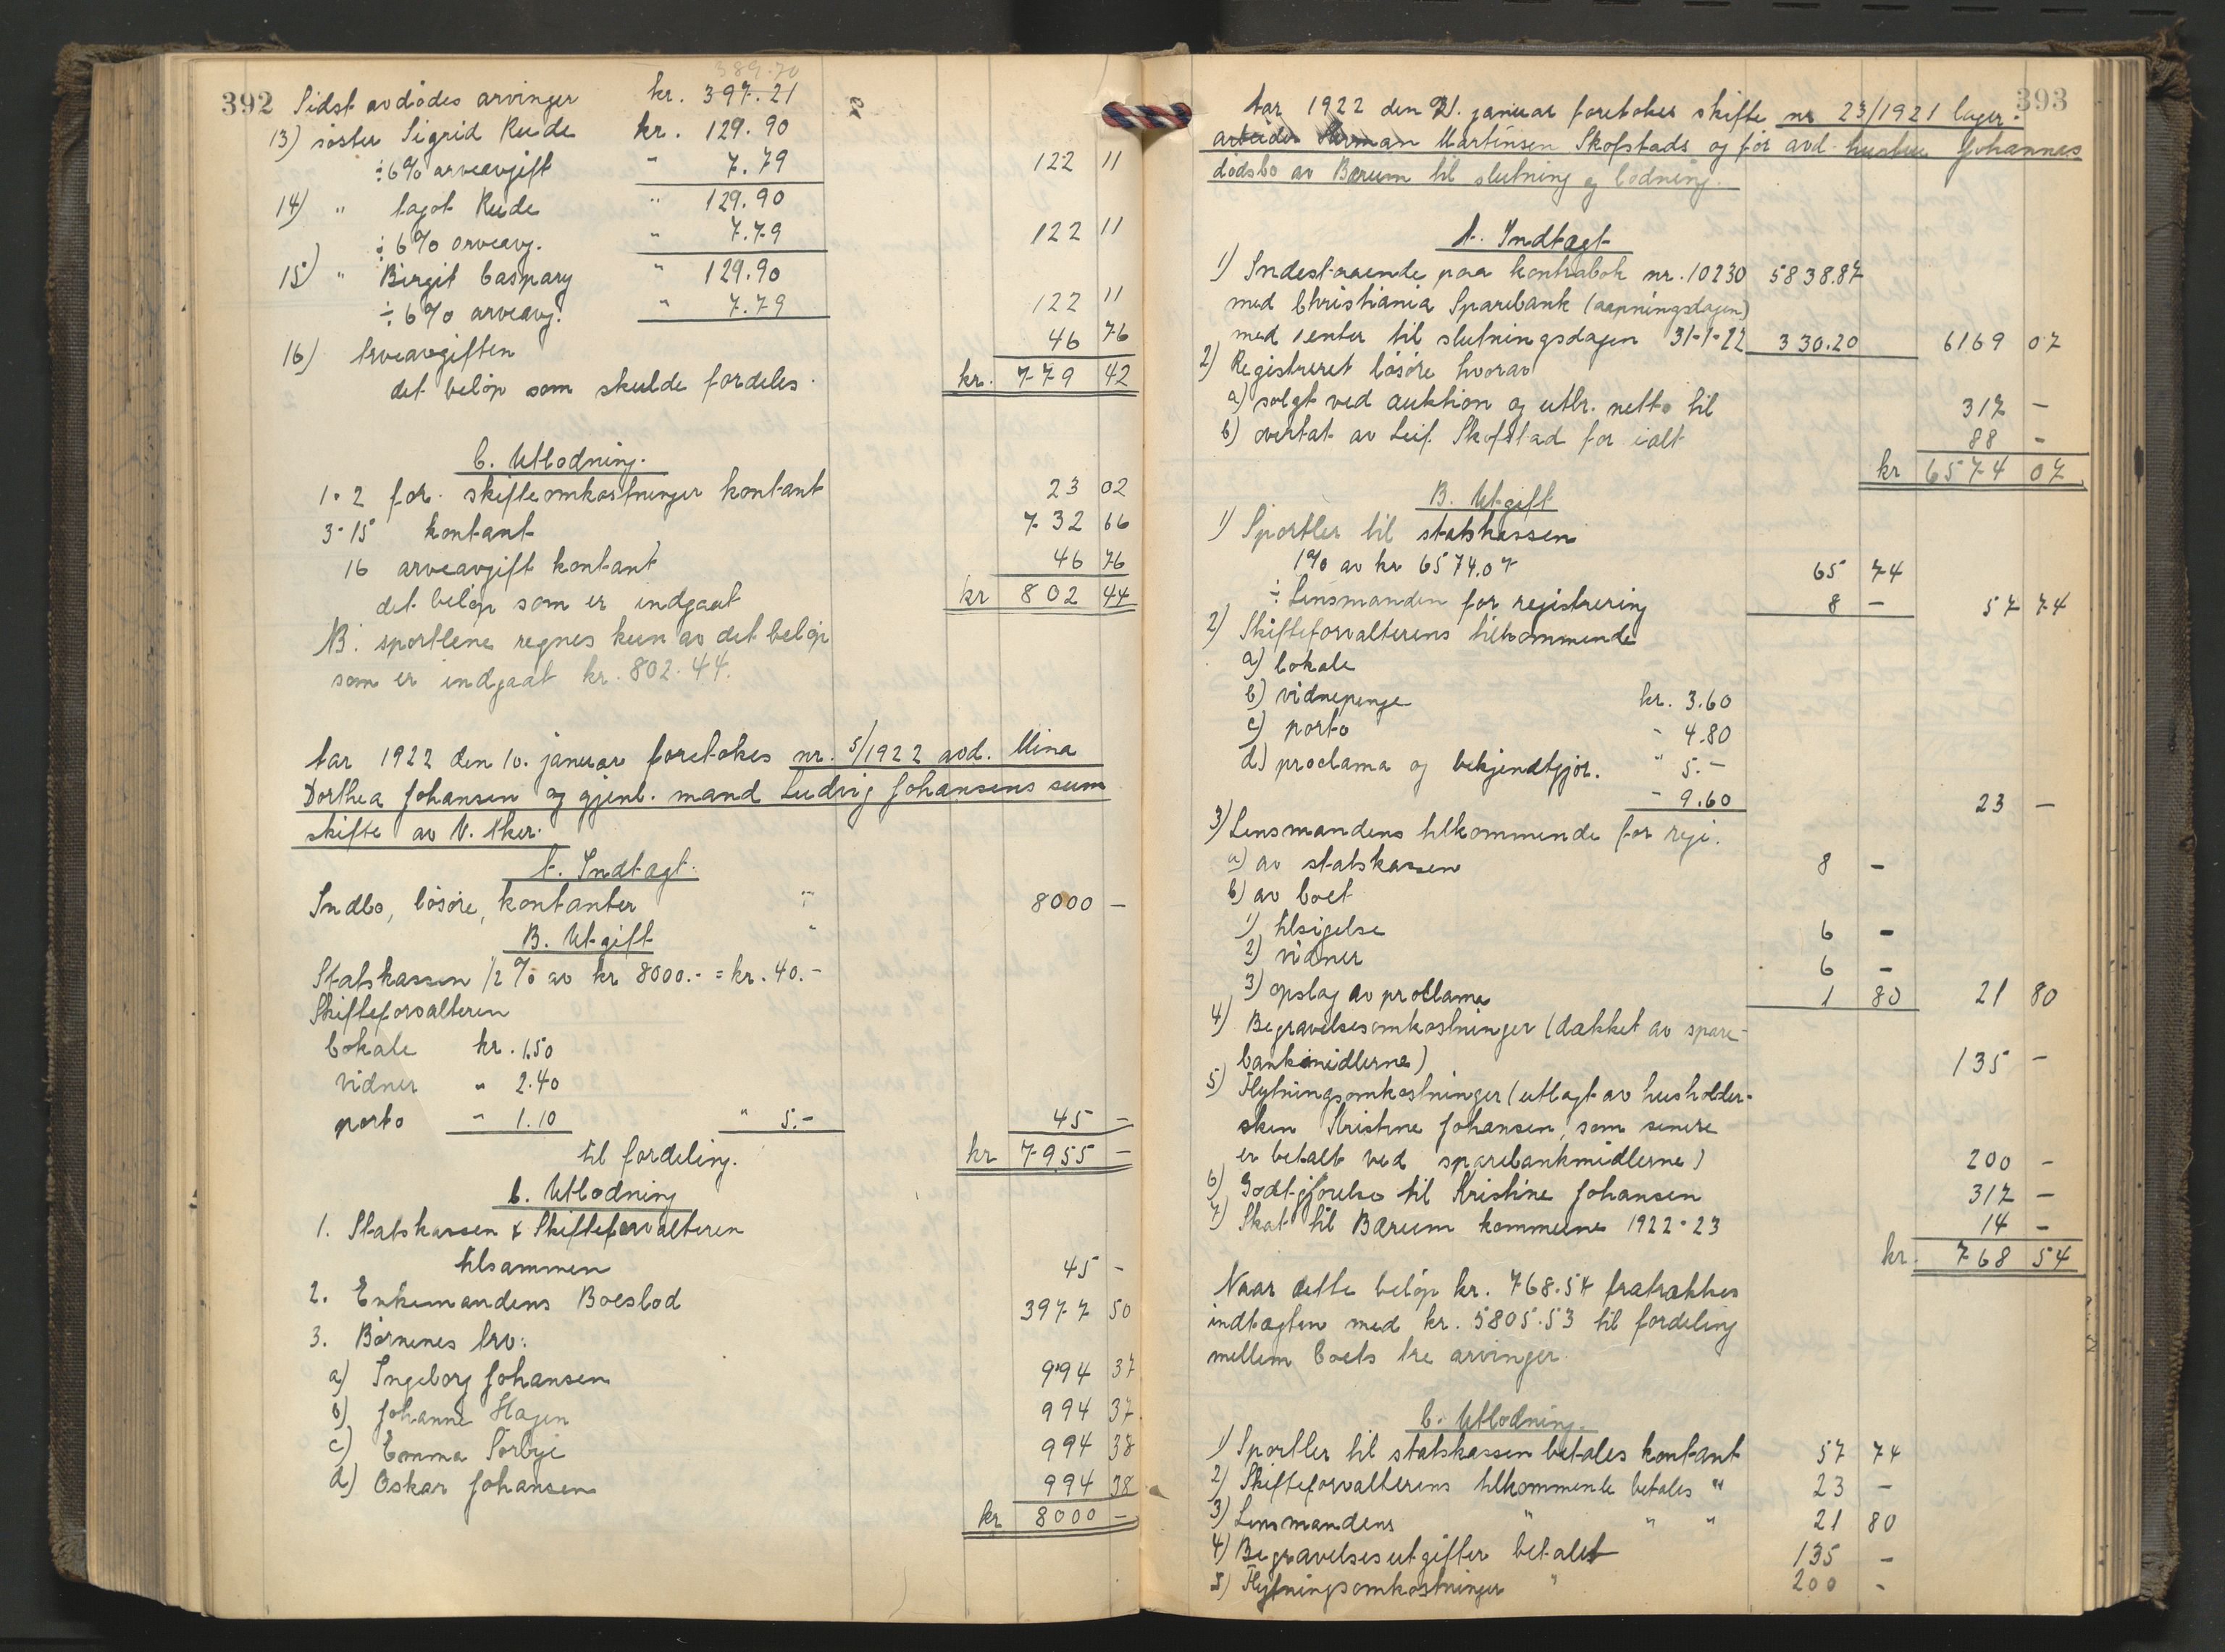 392
389.70
Sidst avdödes arvinger kr. 397.21
13) söster Sigrid Rude kr. 129.90
÷ 6% arveavgift " 7.79 122 11
14) " Rude " 129.90
÷ 6% arveavg. " 7.79 122 11
15) " Birgit Caspary " 129.90
÷ 6% arveavg. " 7.79 122 11
16) Arveavgiften 46 76
det belöp som skulde fordeles. kr. 779 42
C. Utlodning.
1-2 for. skifteomkostninger kontant 23 02
3-15 kontant 732 66
16 arveavgift kontant 46 76
det belöp som er indgaat kr 802 44
NB: sportlene regnes kun av det belöp
som er indgaat kr. 802.44.
Aar 1922 den 10. januar foretokes nr. 5/1922 avd. Mina
Dorthea Johansen og gjenl. mand Ludvig Johansens sum
skifte av V. Aker.
A. Indtægt.
Indbo, lösöre, kontanter " 8000 –
B. Utgift "
Statskassen 1/2 % av kr 8000.- = kr. 40.-
Skifteforvalteren
Lokale kr. 1.50
vidner " 2.40
porto " 1.10 " 5.- 45 –
til fordeling. kr 7955 –
C. Utlodning
1. Statskassen & Skifteforvalteren
tilsammen 45 -
2. Enkemandens Boeslod 3977 50
3. Börnenes Arv:
a) Ingeborg Johansen 994 37
b) Johanne Hagen 994 37
c) Emma Sörbye 994 38
d) Oskar Johansen 994 38
kr 8000 –
393
Aar 1922 den 31. januar foretokes skifte nr 23/1921 lager-
arbeider Herman Martinsen Skofstads og för avd. hustru Johannes
dödsbo av Bærum til slutning og lodning.
A. Indtægt
1) Indestaaende paa kontrabok nr. 10230 5838.87
med Christiania Sparebank (aapningsdagen)
med renter til slutningsdagen 31-1-22 330.20 6169 07
2) Registreret lösöre hvorav
a) solgt ved auktion og utbr. netto til 317 –
b) overtat av Leif Skofstad for ialt 88 -
kr 6574 07
B. Utgift
1) Sportler til statskassen
1% av kr 6574.07 65 74
÷ Lensmanden for registrering 8 – 57 74
2) Skifteforvalterens tilkommende
a) Lokale
b) vidnepenge kr. 3.60
c) porto " 4.80
d) proclama og bekjendtgjör. " 5.–
" 9.60 23 –
3) Lensmandens tilkommende for regi.
a) av statskassen 8 –
b) av boet
1) tilsigelse 6 –
2) vidner 6 –
3) opslag av proclama 1 80 21 80
4) Begravelsesomkostninger (dækket av spare-
bankmidlerne) 135 –
5) Flytningsomkostninger (utlagt av husholder-
sken Kristine Johansen, som senere
er betalt ved sparebankmidlerne) 200 -
6) Godtgjörelse til Kristine Johansen 317 –
7) Skat til Bærum kommune 1922-23 14 –
kr. 768 54
Naar dette belöp kr. 768.54 fratrækkes
indtægten med kr. 5805.53 til fordeling
mellem boets tre arvinger.
C. Utlodning.
1) Sportler til statskassen betales kontant 57 74
2) Skifteforvalterens tilkommende betales " 23 –
3) Lensmandens " " " 21 80
4) Begravelsesutgifter betalt 135 –
5) Flytningsomkostninger " 200 -